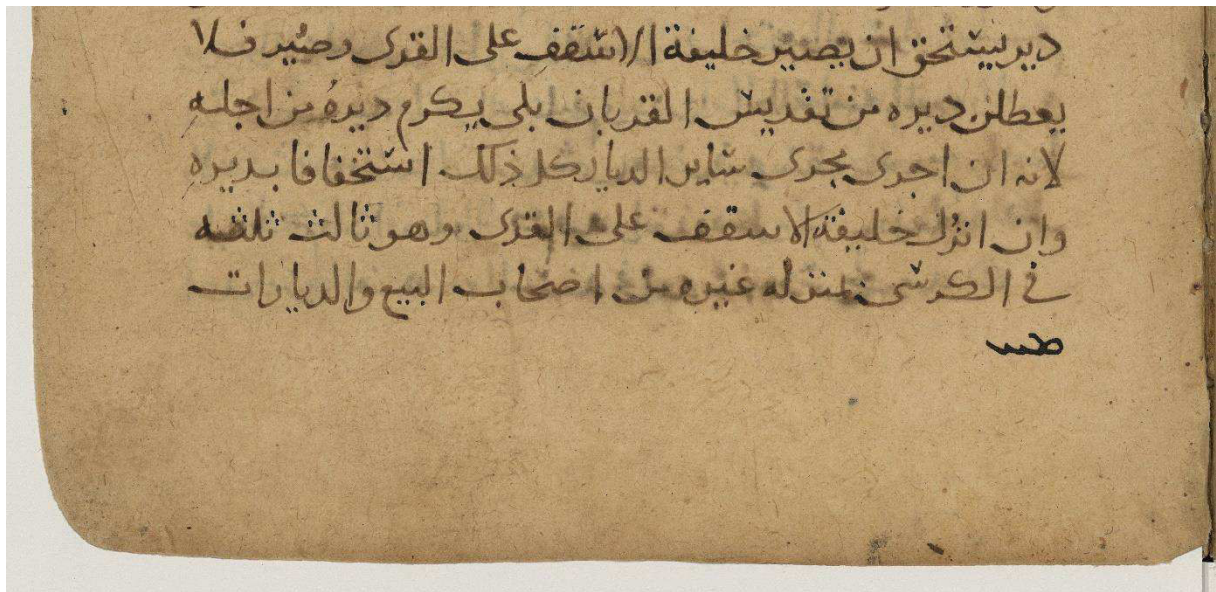 دير يستحق ان يصير خليفة الاسقف على القرى وصير فلا
يعطلن ديره من تقديس القربان بلى يكرم ديره من اجله
لانه ان اجرى مجرى ساير الديار كل ذلك استخفافا بديره
وان انزل خليفة الاسقف على القرى وهو ثالث ثلثه
في الكرسي بمنزله غيره من اصحاب البيع والديارات